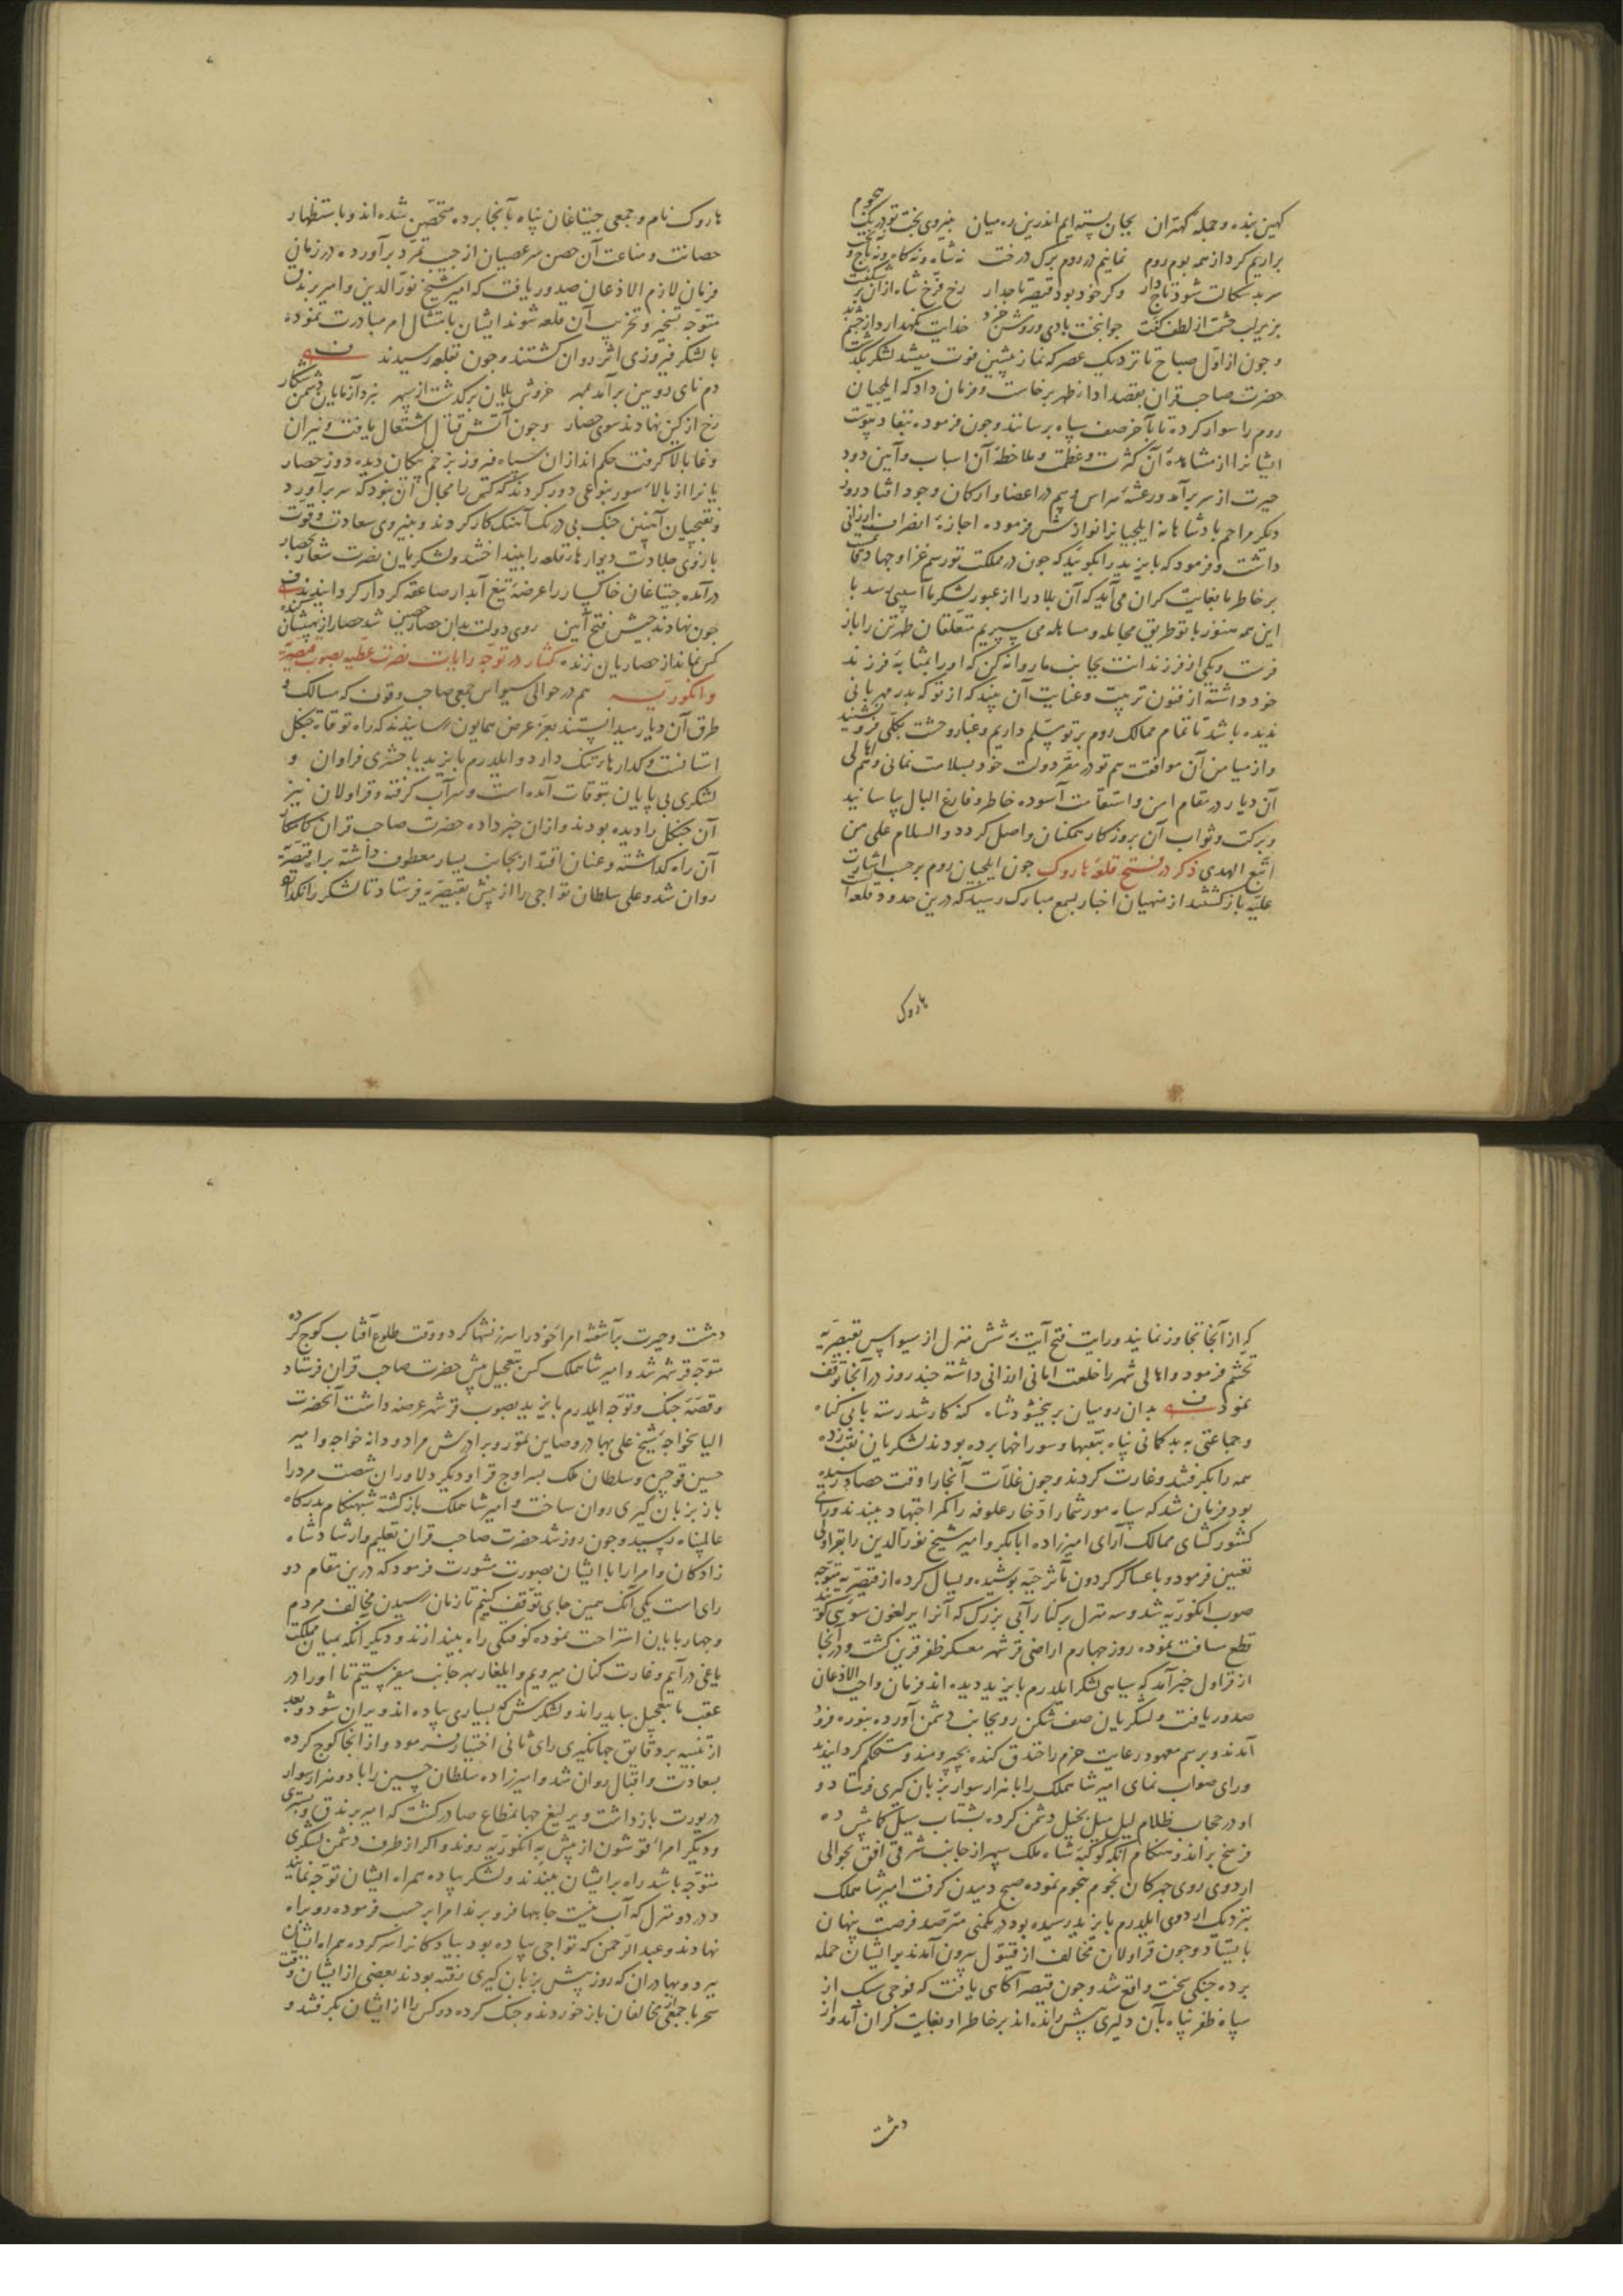 کهین بنده و جمله کهتران بجان بسته ایم اندرین ره میان بنیروی بخت تو در یک هجوم
براریم کرد از همه بوم روم نمانیم در روم برک درخت نه شاه و نه کاه و نه تاج و تخت
سر بدسکالت شود تاج دار وکر خود بود قیصر تاجدار رخ فرّخ شاه ازان بر شکفت
بزیر لب حشمت از لطف کفت جوانبخت بادی و روشن خرد خدایت نکهدارد از چشم بد
و چون از اوّل صباح تا نزدیک عصر که نماز پیشین فوت میشد لشکر بکذشت
حضرت صاحب قران بقصد ادا از ظهر برخاست و فرمان داد که ایلچیان
روم را سوار کرده تا بآخر صف سپاه برسانند و چون فرموده بنفاذ پیوست
ایشانرا از مشاهدهٔ آن کثرت و عظمت و ملاحظهٔ آن اسباب و آیین دود
حیرت از سر برآمد و رعشهٔ هراس و بیم در اعضا و ارکان وجود افتاد روز
دیکر مراحم پادشاهانه ایلچیانرا نوازش فرموده اجازهٔ انصراف ارزانی
داشت و فرمود که بایزید را بکویید که چون در مملکت تو رسم غزا و جهاد
بر خاطر ما بغایت کران می آید که آن بلاد را از عبور لشکر ما آسیبی رسد با
این همه هنوز با تو طریق مجامله و مساهله می سپریم متعلقان طهرتن را باز
فرست و یکی از فرزندانت بجانب ما روانه کن که او را بمثابهٔ فرزند
خود داشته از فنون تربیت و عنایت آن بیند که از تو که پدر مهربانی
ندیده باشد تا تمام ممالک روم بر تو مسلّم داریم و غبار وحشت بکلّی فرو نشیند
و از میامن آن موافقت هم تو در مقرّ دولت خود بسلامت بمانی و هم اهالی
آن دیار در مقام امن و استقامت آسوده خاطر و فارغ البال بیاسایند
و برکت و ثواب آن بروزکار همکنان واصل کردد والسلام علی من
اتبع الهدی ذکر در فتح قلعهٔ هاروک چون ایلچیان روم بر حسب اشارت
علیّه بازکشتند از منهیان اخبار بسمع مبارک رسید که درین حدود قلعه ایست
هاروک
هاروک نام و جمعی جیتاغان پناه بآنجا برده متحصّن شده اند و باستظهار
حصانت و مناعت آن حصن سر عصیان از جیب تمرّد برآورده در زمان
فرمان لازم الاذعان صدور یافت که امیر شیخ نورالدین و امیر برندق
متوجّه تسخیر و تخریب آن قلعه شوند ایشان بامتثال امر مبادرت نموده
با لشکر فیروزی اثر روان کشتند و چون بقلعه رسیدند
دم نای رویین برآمد بمهر خروش یلان برکذشت از سپهر نبرد آزمایان دشمن شکار
رخ از کین نهادند سوی حصار و چون آتش قتال اشتعال یافت و نیران
وغا بالا کرفت حکم اندازان سپاه فیروز بزخم پیکان دیده دوز حصار
یانرا از بالاء سور بنوعی دور کردند که کس را مجال آن نبود که سر برآورد
و نقبچیان آهنین جنک بی درنک آهنک کار کردند و بنیروی سعادت و قوت
بازوی جلادت دیوارهاء قلعه را بینداختند و لشکریان نصرت شعار بحصار
درآمده جیتاغان خاکسار را عرضهٔ تیغ آبدار صاعقه کردار کردانیدند
چون نهادند جیش فتح آیین روی دولت بدان حصار حصین شد حصار از نهیبشان
کس نماند از حصاریان زنده کفتار در توجّه رایات نصرت عطیه بصوب قیصریّه
و انکوریّه هم در حوالی سیواس جمعی صاحب وقوف که مسالک و
طرق آن دیار میدانستند بعزّ عرض همایون رسانیدند که راه توقات جنکل
استانست و کدارهاء تنک دارد و ایلدرم بایزید با حشری فراوان و
لشکری بی پایان بتوقات آمده است و سر آب کرفته و قراولان نیز
آن جنکل را دیده بودند و ازان خبر داده حضرت صاحب قران کامکار
آن راه کذاشته و عنان اقتدار بجانب یسار معطوف داشته براه قیصریّه
روان شد و علی سلطان تواجی را از پیش بقیصریّه فرستاد تا لشکر را نکذارد
که از آنجا تجاوز نمایند و رایت فتح آیت به شش منزل از سیواس بقیصریّه
تحشّم فرمود و اهالی شهر را خلعت امانی ارزانی داشته چند روز در آنجا توقّف
نمود بدان رومیان بر ببخشود شاه که کارشد رسته با بی کناه
و جماعتی به بدکمانی پناه بنقبها و سوراخها برده بودند لشکریان نقب زده
همه را بکرفتند و غارت کردند و چون غلّات آنجا را وقت حصاد رسیده
بود فرمان شد که سپاه مور شمار ادّخار علوفه را کمر اجتهاد ببندند و رای
کشورکشای ممالک آرای امیرزاده ابابکر و امیر شیخ نورالدین را بقراولی
تعیین فرمود و با عساکر کردون مآثر جبه پوشیده و یسال کرده از قیصریّه متوجّه
صوب انکوریّه شد و سه منزل بر کنار آبی بزرک که آنرا یرلغون سوئی کویند
قطع مسافت نموده روز چهارم اراضی قرشهر معسکر ظفر قرین کشت و در آنجا
از قراول خبر آمد که سیاهی لشکر ایلدرم بایزید دیده اند فرمان واجب الاذعان
صدور یافت و لشکریان صف شکن رو بجانب دشمن آورده بنوره فرود
آمدند و برسم معهود رعایت حزم را خندق کنده بچپر و مندو مستحکم کردانیدند
و رای صواب نمای امیر شاهملک را با هزار سوار بزبان کیری فرستاد و
او در حجاب ظلام لیل میل بخیل دشمن کرده بشتاب سیل کمابیش ده
فرسخ براند و هنکام آنکه کوکبهٔ شاه ملک سپهر از جانب شرقی افق بحوالی
اردوی روی چهرکان نجوم هجوم نموده صبح دمیدن کرفت امیر شاهملک
بنزدیک اردوی ایلدرم بایزید رسیده بود در مکمنی مترصّد فرصت پنهان
بایستاد و چون قراولان مخالف از قیتول بیرون آمدند بر ایشان حمله
برده جنکی سخت واقع شد و چون قیصر آکاهی یافت که فوجی سبک از
سپاه ظفر پناه بآن دلیری پیش رانده اند بر خاطر او بغایت کران آمد و از
دهشت
دهشت و حیرت برآشفته امراء خود را سرزنشها کرد و وقت طلوع آفتاب کوچ کرده
متوجّه قرشهر شد و امیر شاهملک کس بتعجیل پیش حضرت صاحب قران فرستاد
و قصّهٔ جنک و توجّه ایلدرم بایزید بصوب قرشهر عرضه داشت آنحضرت
الیاس خواجهٔ شیخ علی بهادر و صاین تمور و برادرش مراد و دانه خواجه و امیر
حسین قوجین و سلطان ملک پسر اوج قرا و دیکر دلاوران شصت مرد را
باز بزبان کیری روان ساخت و امیر شاهملک بازکشته شبهنکام بدرکاه
عالمپناه رسید و چون روز شد حضرت صاحب قران تعلیم و ارشاد شاه
زادکان و امرا را با ایشان بصورت مشورت فرمود که درین مقام دو
رای است یکی آنک همین جای توقّف کنیم تا زمان رسیدن مخالف مردم
و چهارپایان استراحت نموده کوفتکی راه بیندازند و دیکر آنکه بمیان مملکت
یاغی درآییم و غارت کنان میرویم و ایلغار بهر جانب میفرستیم تا او را در
عقب ما بتعجیل بباید راند و لشکرش که بسیاری پیاده اند ویران شود و بعد
از تنبیه بر دقایق جهانکیری رای ثانی اختیار فرمود و از انجا کوچ کرده
بسعادت و اقبال روان شد و امیرزاده سلطان حسین را با دو هزار سوار
در یورت بازداشت و یرلیغ جهانمطاع صادر کشت که امیر برندق و بستری
و دیکر امراء قوشون از پیش به انکوریّه روند و اکر از طرف دشمن لشکری
متوجّه باشد راه بر ایشان ببندند و لشکر پیاده همراه ایشان توجّه نمایند
و در دو منزل که آب نیست چاهها فرو برند امرا بر حسب فرموده رو براه
نهادند و عبدالرّحمن که تواجی پیاده بود پیادکانرا سر کرده همراه ایشان
ببرد و بهادران که روز پیش بزبان کیری رفته بودند بعضی از ایشان وقت
سحر با جمعی از مخالفان باز خوردند و جنک کرده دو کس را از ایشان بکرفتند و